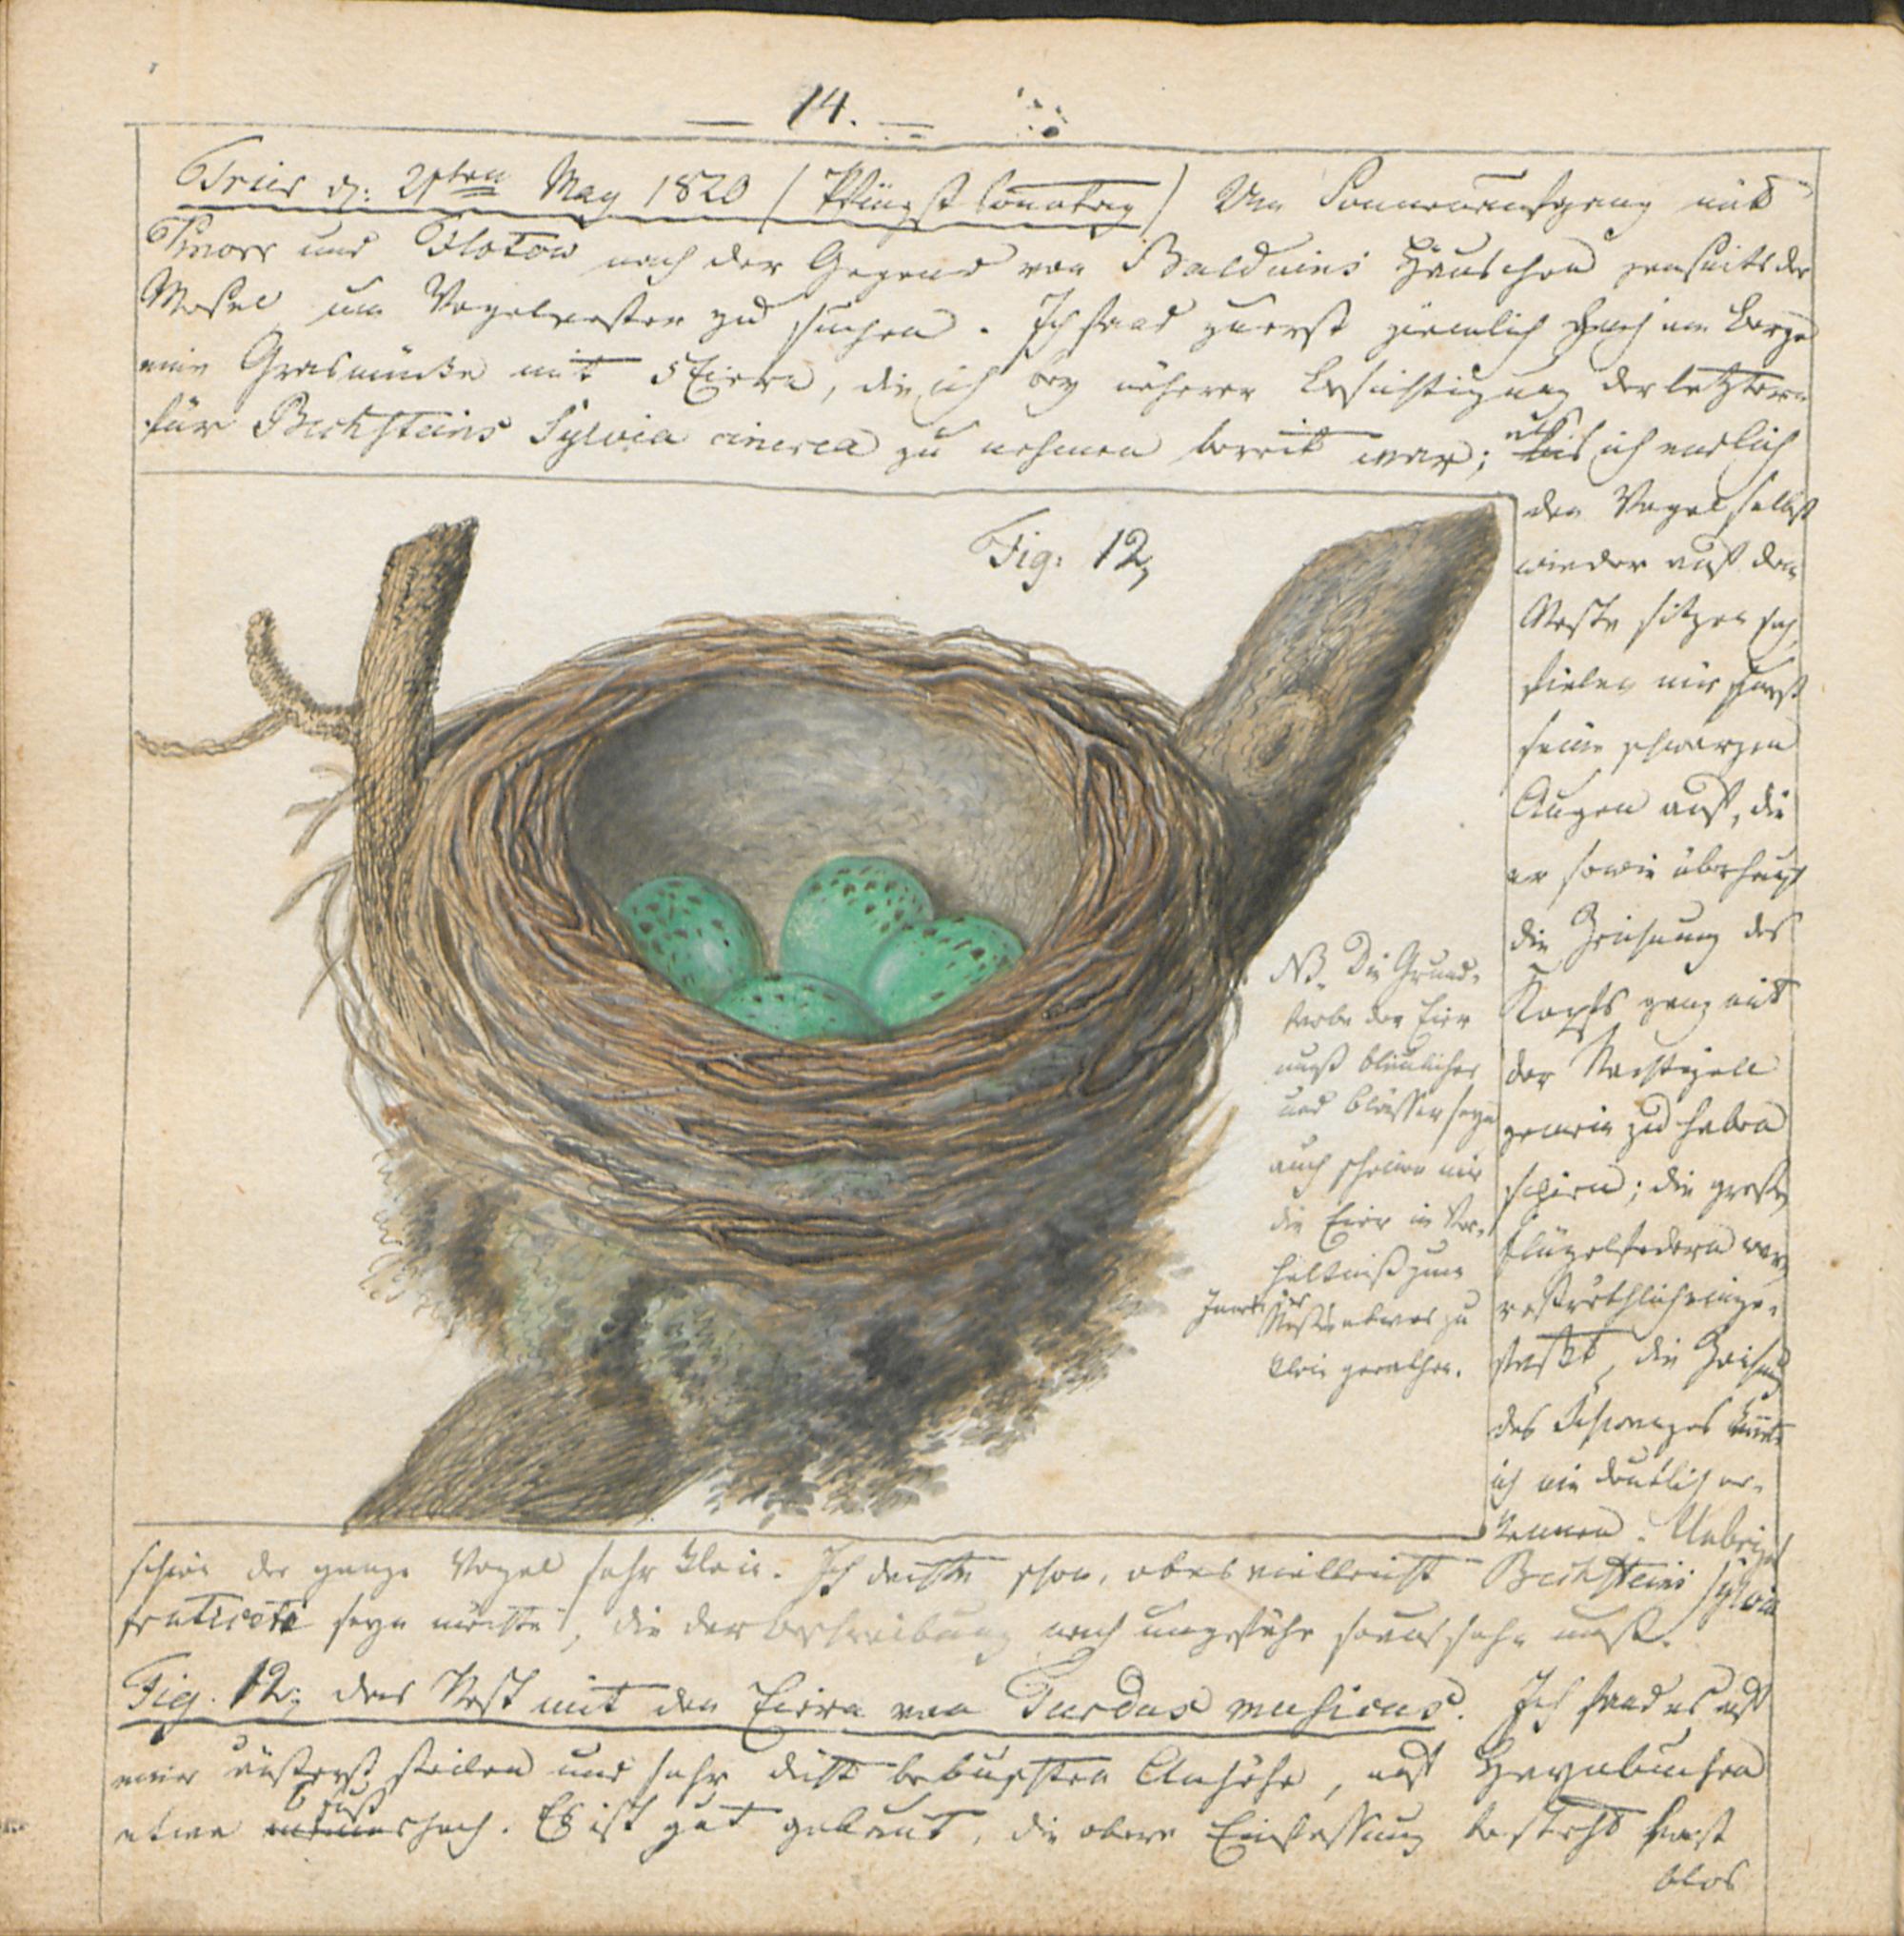 — 14. —
Trier d: 21sten May 1820 (Pfingstsonntag) Um Sonnenaufgang mit
und Flotow nach der Gegend von Balduins Häuschen jenseits der
Mosel um Vogelnester zu suchen. Ich fand zuerst ziemlich hoch am Berge
eine Grasmücke mit 5 Eiern, die ich bey näherer Besichtigung der letztern
für Bechsteins Sylvia cinerea zu nehmen bereit war; als ich endlich
den Vogel selbst
wieder auf dem
Neste sitzen sah,
fielen mir zuerst
seine schwarzen
Augen auf, die
er sowie überhaupt
die Zeichnung des
Kopfs ganz mit
der Nachtigall
gemein zu haben
schien; die großen
Flügelfedern waren
roströthlich einge-
faßt, die Zeichnung
des Schwanzes konnte
ich nie deutlich er-
kennen. Uebrigens
Fig: 12,
NB. Die Grund-
farbe der Eier
muß bläulicher
und blässer seyn
auch scheinen mir
die Eier im Ver-
hältniß zum
Innern des Nestes etwas zu
klein gerathen.
schien der ganze Vogel sehr klein. Ich dachte schon, ob es vielleicht Bechsteins Sylvia
fruticeti seyn möchte, die der Beschreibung nach ungefähr so aussehn muß.
Fig. 12, das Nest mit den Eiern von Turdus musicus. Ich fand es auf
einer äußerst steilen und sehr dicht bebuschten Anhöhe, auf Haynbuchen
etwa Fuß hoch. Es ist gut gebaut, die obere Einfassung besteht fast
blos